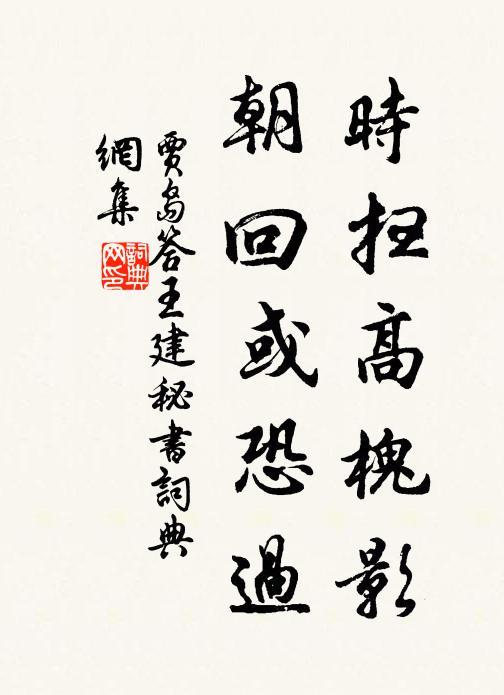 時扫高槐影
朝回或恐過
賈島答王建秘書詞典
網集
詞典网印